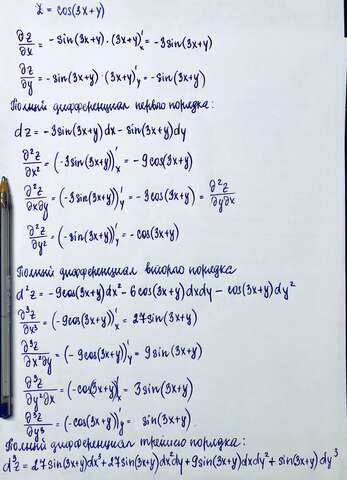 z = cos(3x+y)
∂z/∂x = -sin(3x+y)·(3x+y)'ₓ = -3sin(3x+y)
∂z/∂y = -sin(3x+y)·(3x+y)'ᵧ = -sin(3x+y)
Полный дифференциал первого порядка:
dz = -3sin(3x+y)dx - sin(3x+y)dy
∂²z/∂x² = (-3sin(3x+y))'ₓ = -9cos(3x+y)
∂²z/∂x∂y = (-3sin(3x+y))'ᵧ = -3cos(3x+y) = ∂²z/∂y∂x
∂²z/∂y² = (-sin(3x+y))'ᵧ = -cos(3x+y)
Полный дифференциал второго порядка
d²z = -9cos(3x+y)dx² - 6cos(3x+y)dxdy - cos(3x+y)dy²
∂³z/∂x³ = (-9cos(3x+y))'ₓ = 27sin(3x+y)
∂³z/∂x²∂y = (-9cos(3x+y))'ᵧ = 9sin(3x+y)
∂³z/∂y²∂x = (-cos(3x+y))'ₓ = 3sin(3x+y)
∂³z/∂y³ = (-cos(3x+y))'ᵧ = sin(3x+y)
Полный дифференциал третьего порядка:
d³z = 27sin(3x+y)dx³+27sin(3x+y)dx²dy+9sin(3x+y)dxdy²+sin(3x+y)dy³